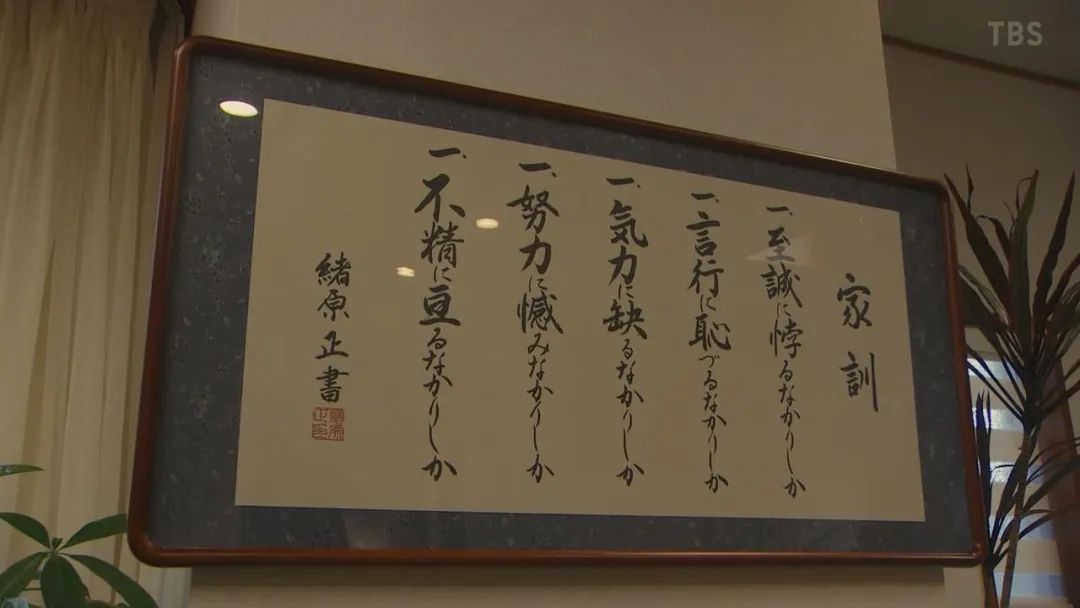 TBS
家訓
一、至誠に悖るなかりしか
一、言行に恥づるなかりしか
一、気力に缺るなかりしか
一、努力に憾みなかりしか
一、不精に亘るなかりしか
緒原正書